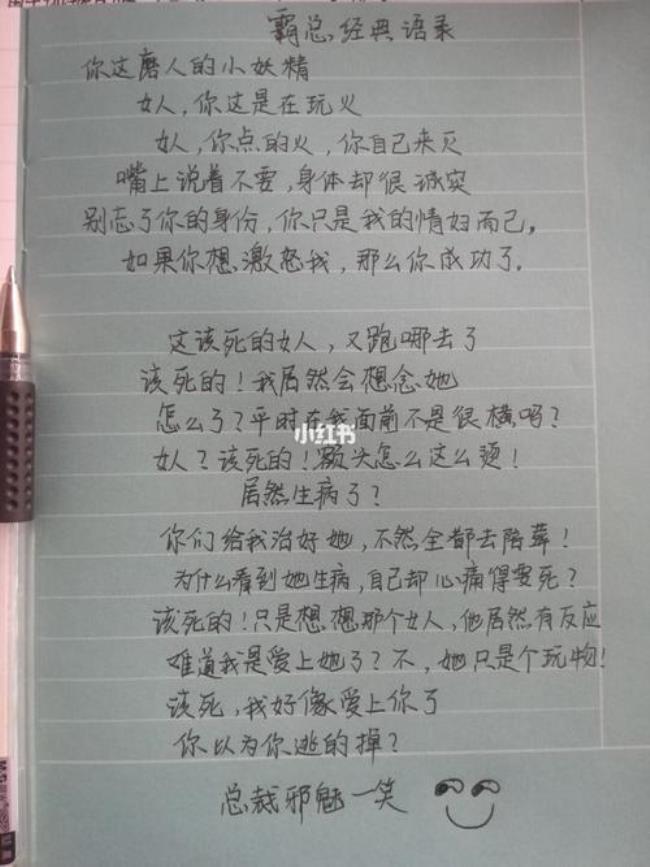 霸总经典语录
你这磨人的小妖精
女人,你这是在玩火
女人,你点的火,你自己来灭
嘴上说着不要,身体却很诚实
别忘了你的身份,你只是我的情妇而已。
如果你想激怒我,那么你成功了.
这该死的女人,又跑哪去了
该死的!我居然会想念她
怎么了?平时在我面前不是很横吗?
小红书
女人?该死的!额头怎么这么烫!
居然生病了?
你们给我治好她,不然全都去陪葬!
为什么看到她生病,自己却心痛得要死?
该死的!只是想想那个女人,他居然有反应
难道我是爱上她了?不,她只是个玩物!
该死,我好像爱上你了
你以为你逃的掉?
总裁邪魅一笑